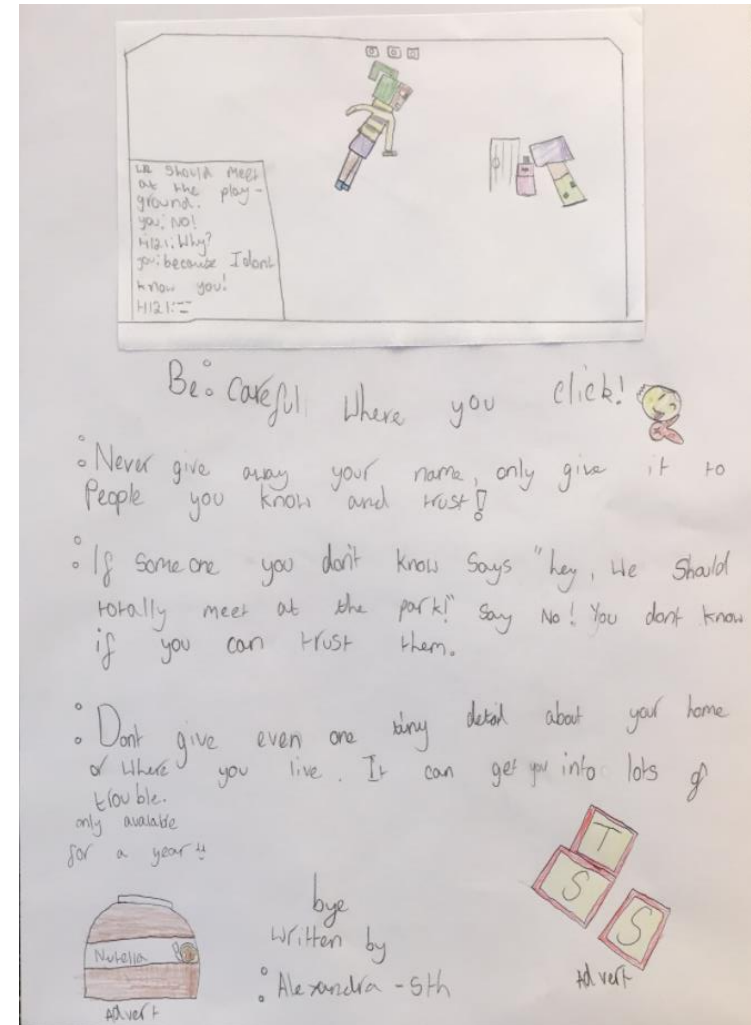 We should meet
at the play-
ground.
you: NO!
H121: Why?
you: because I dont
know you!
H121: --
Be: Careful Where you click!
Never give away your name, only give it to
People you know and trust!
If someone you don't know says "hey, We Should
totally meet at the park!" Say No! You dont know
if you can trust them.
Dont give even one tiny detail about your home
or Where you live. It can get you into lots of
trouble.
only avalable
for a year!!
Nutella
Advert
bye
Written by
Alexandra - 5th
T
S S
Advert